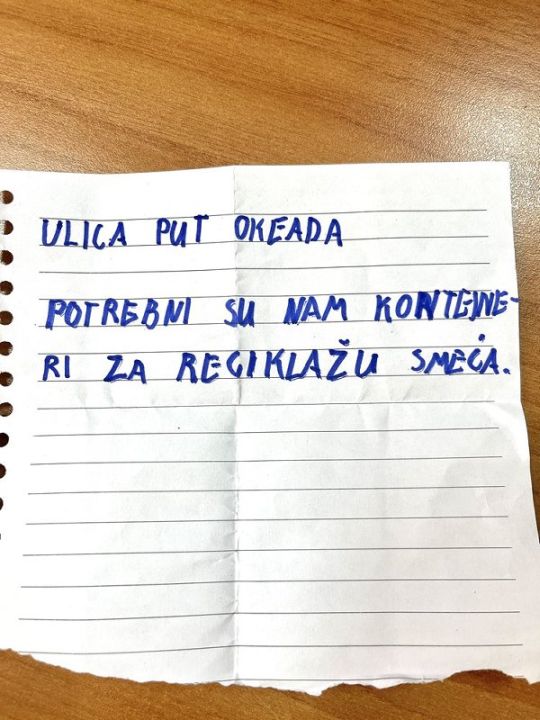 ULICA PUT OKEADA
POTREBNI SU NAM KONTEJNE-
RI ZA RECIKLAŽU SMEĆA.